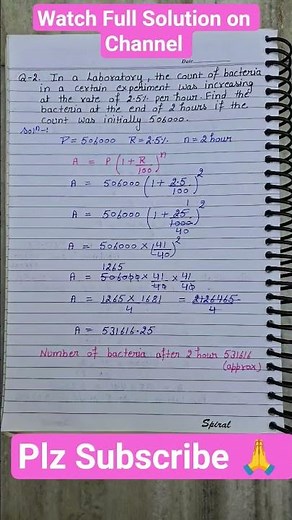 Watch Full Solution on
Channel
Date
Q-2. In a Laboratory, the count of bacteria
in a certain experiment was increasing
at the rate of 2.5% per hour. Find the
bacteria at the end of 2 hours if the
count was initially 506000.
Solⁿ-:
P = 506000 R = 2.5% n = 2 hour
A = P(1 + R/100)ⁿ
A = 506000 (1 + 2.5/100)²
A = 506000 (1 + 25/1000)²
1
40
A = 506000 × (41/40)²
1265
A = 506000 × 41/40 × 41/40
A = 1265 × 1681/4 = 2126465/4
A = 531616.25
Number of bacteria after 2 hour 531616
(approx)
Spiral
Plz Subscribe 🙏